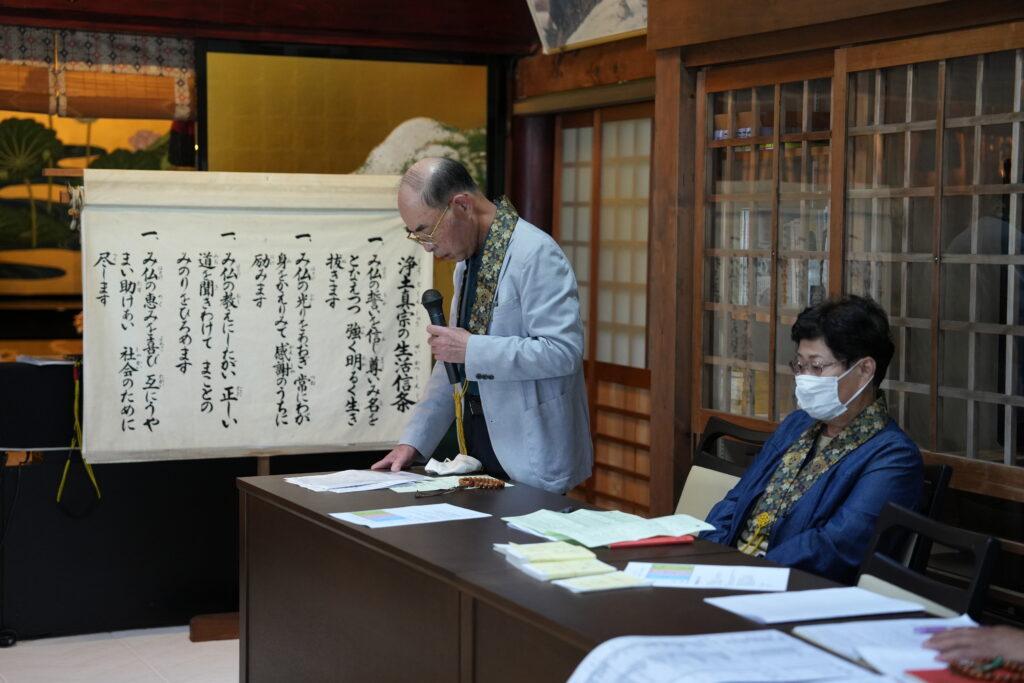 浄土真宗の生活信条
一、み仏の誓いを信じ 尊いみ名を
となえつつ 強く明るく生き
抜きます
一、み仏の光りをあおぎ 常にわが
身をかえりみて 感謝のうちに
励みます
一、み仏の教えにしたがい 正しい
道を聞きわけて まことの
みのりをひろめます
一、み仏の恵みを喜び 互にうや
まい助けあい 社会のために
尽します